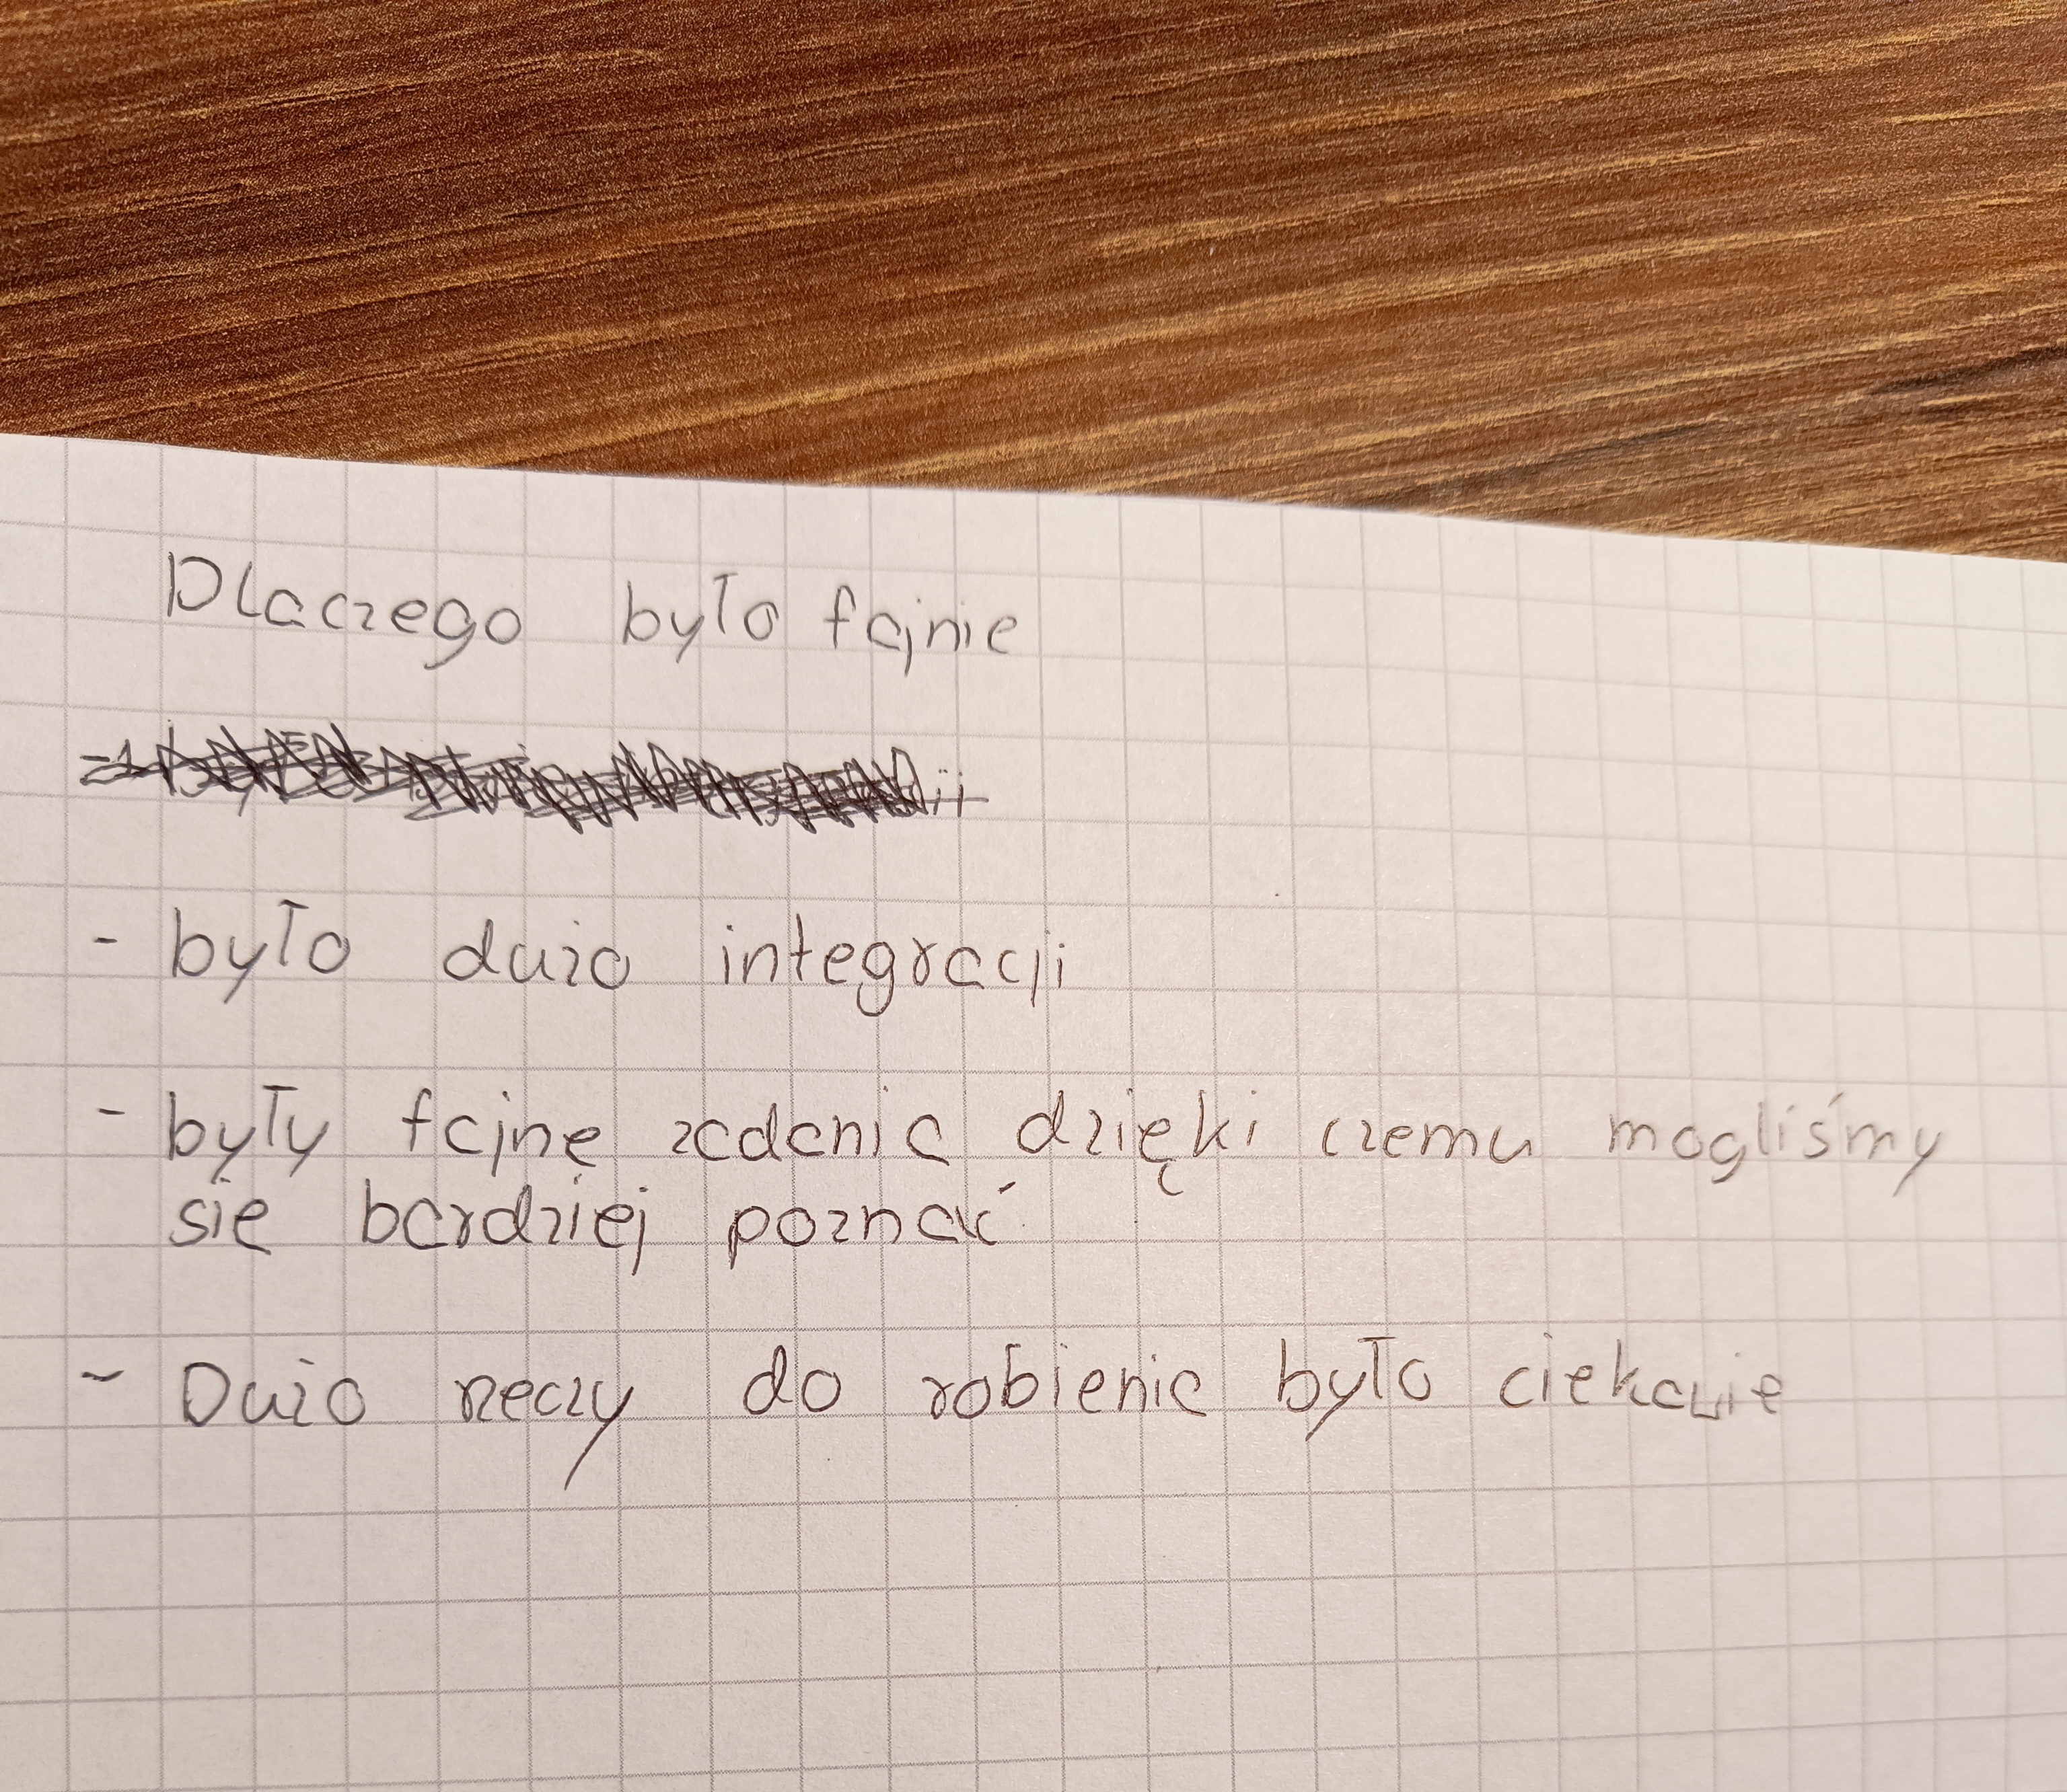 Dlaczego było fajnie
- było dużo integracji
- były fajne zadania dzięki czemu mogliśmy
się bardziej poznać
- Dużo rzeczy do robienia było ciekawie